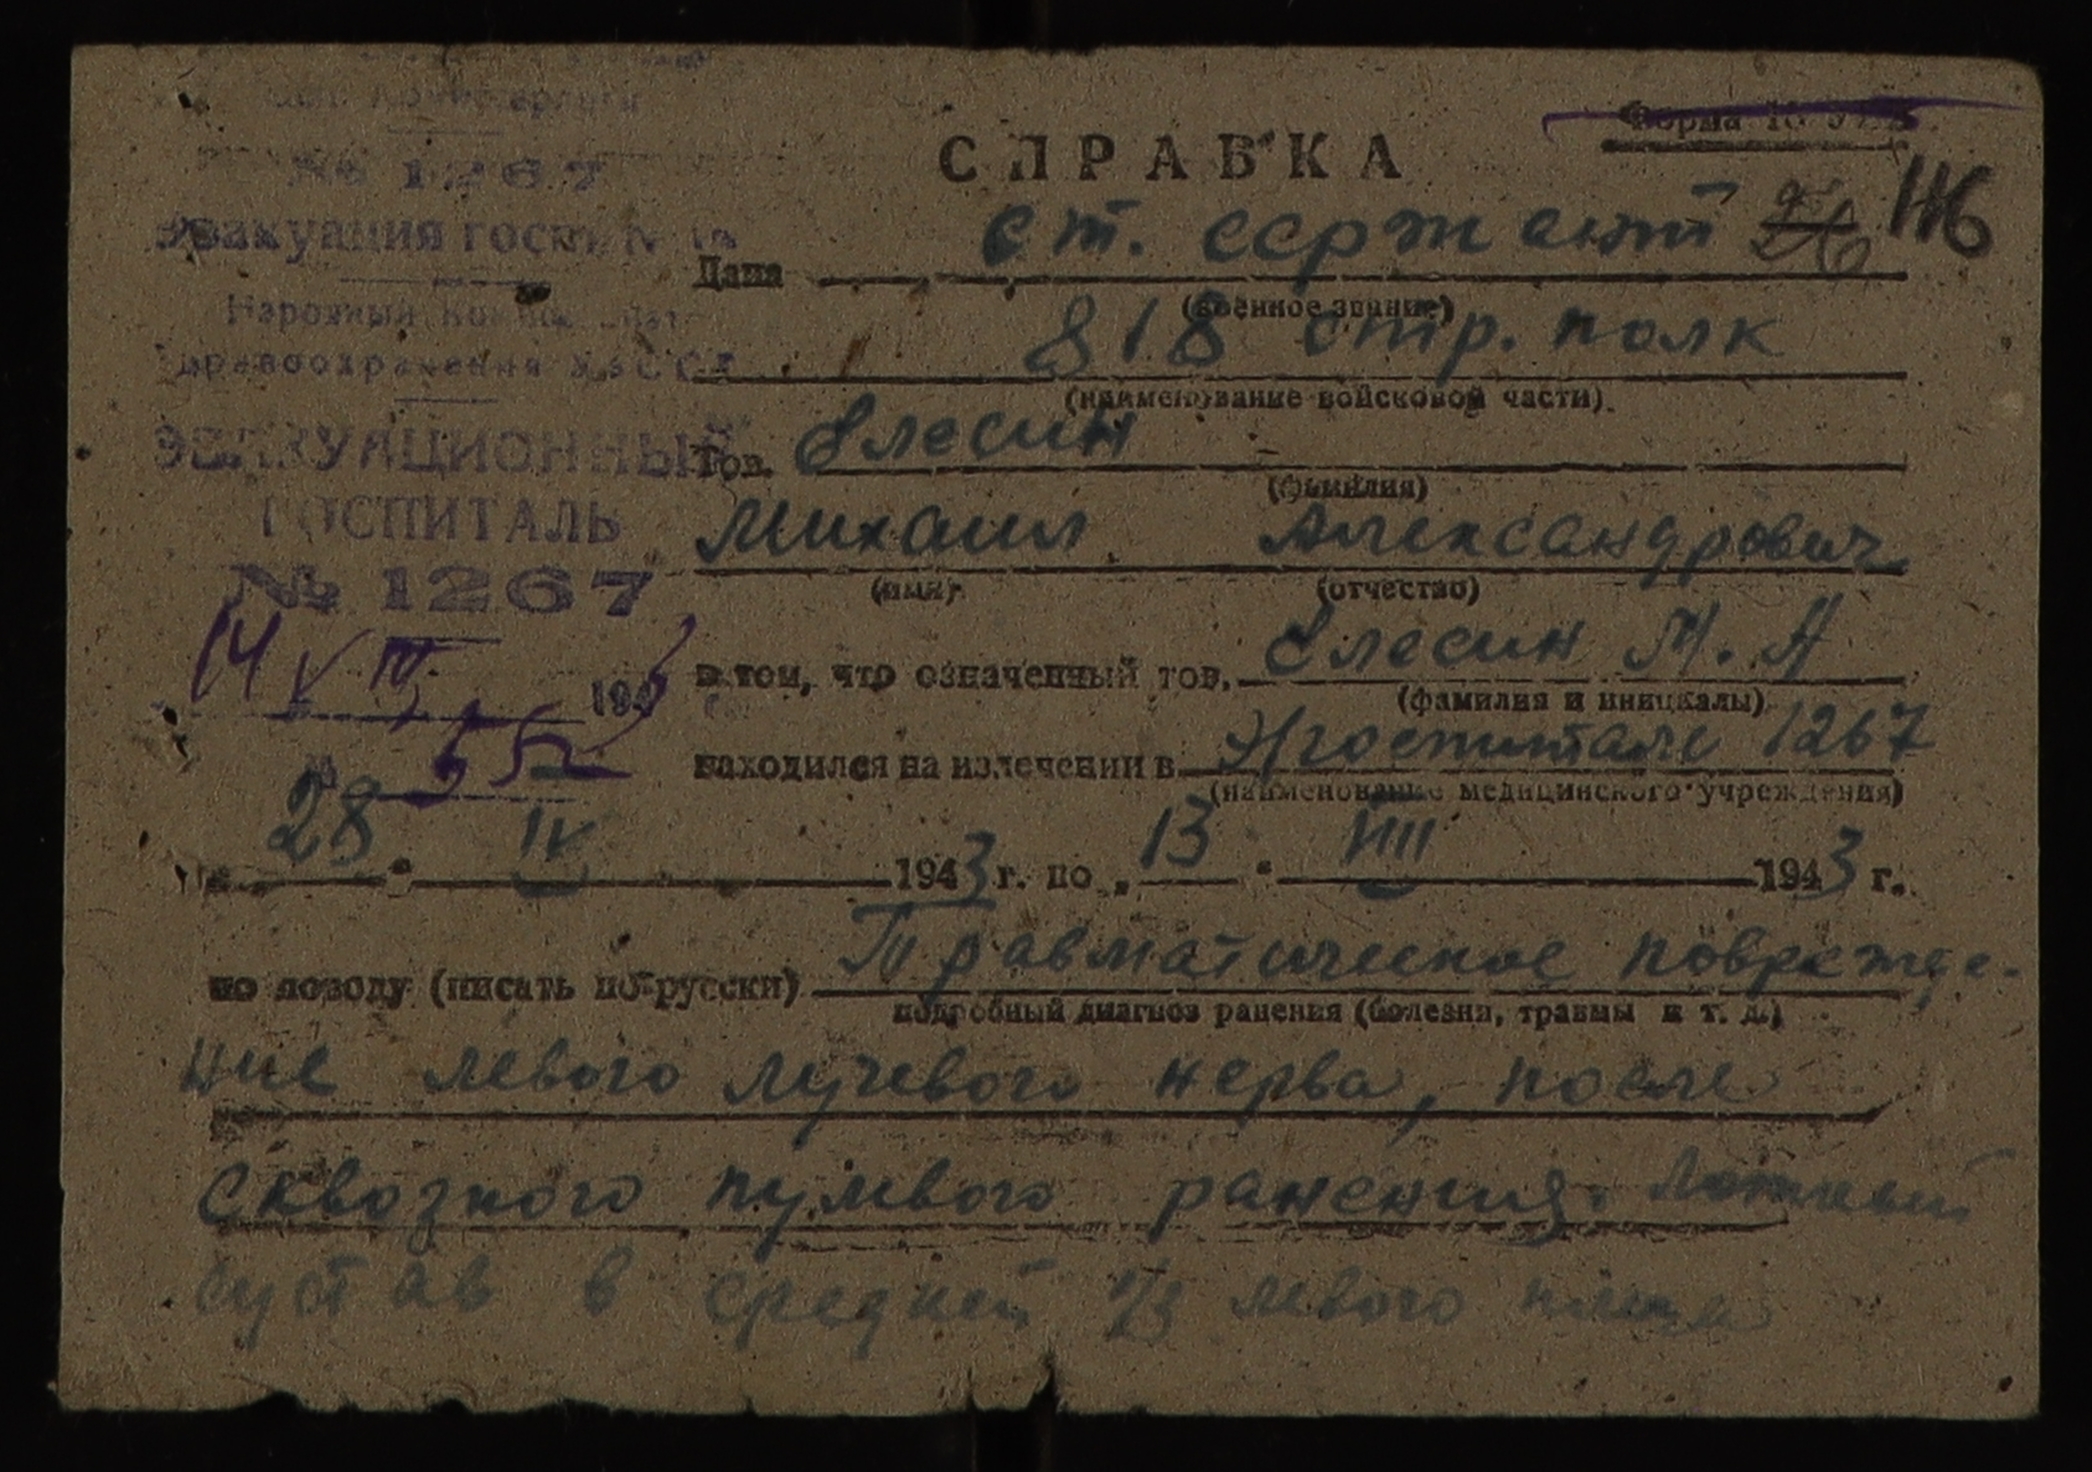 № 1267
Эвакуация госп. №
Народный
Здравоохранения УзССР
ЭВАКУАЦИОННЫЙ
ГОСПИТАЛЬ
№ 1267
14 VIII 1943
№ 552
Форма 16
146
СПРАВКА
Дана ст. сержант
(военное звание)
818 стр. полк
(наименование войсковой части).
Тов. Елесин
(фамилия)
Михаил Александрович
(имя) (отчество)
в том, что означенный тов. Елесин М. А
(фамилия и инициалы)
находился на излечении в Э/госпитале 1267
(наименование медицинского учреждения)
28 " IV 1943 г. по „ 13 " VIII 1943 г.
по поводу (писать по-русски) Травматическое поврежде-
подробный диагноз ранения (болезни, травмы и т. д.)
ние левого лучевого нерва, после
сквозного пулевого ранения. Ложный
сустав в средней 1/3 левого плеча